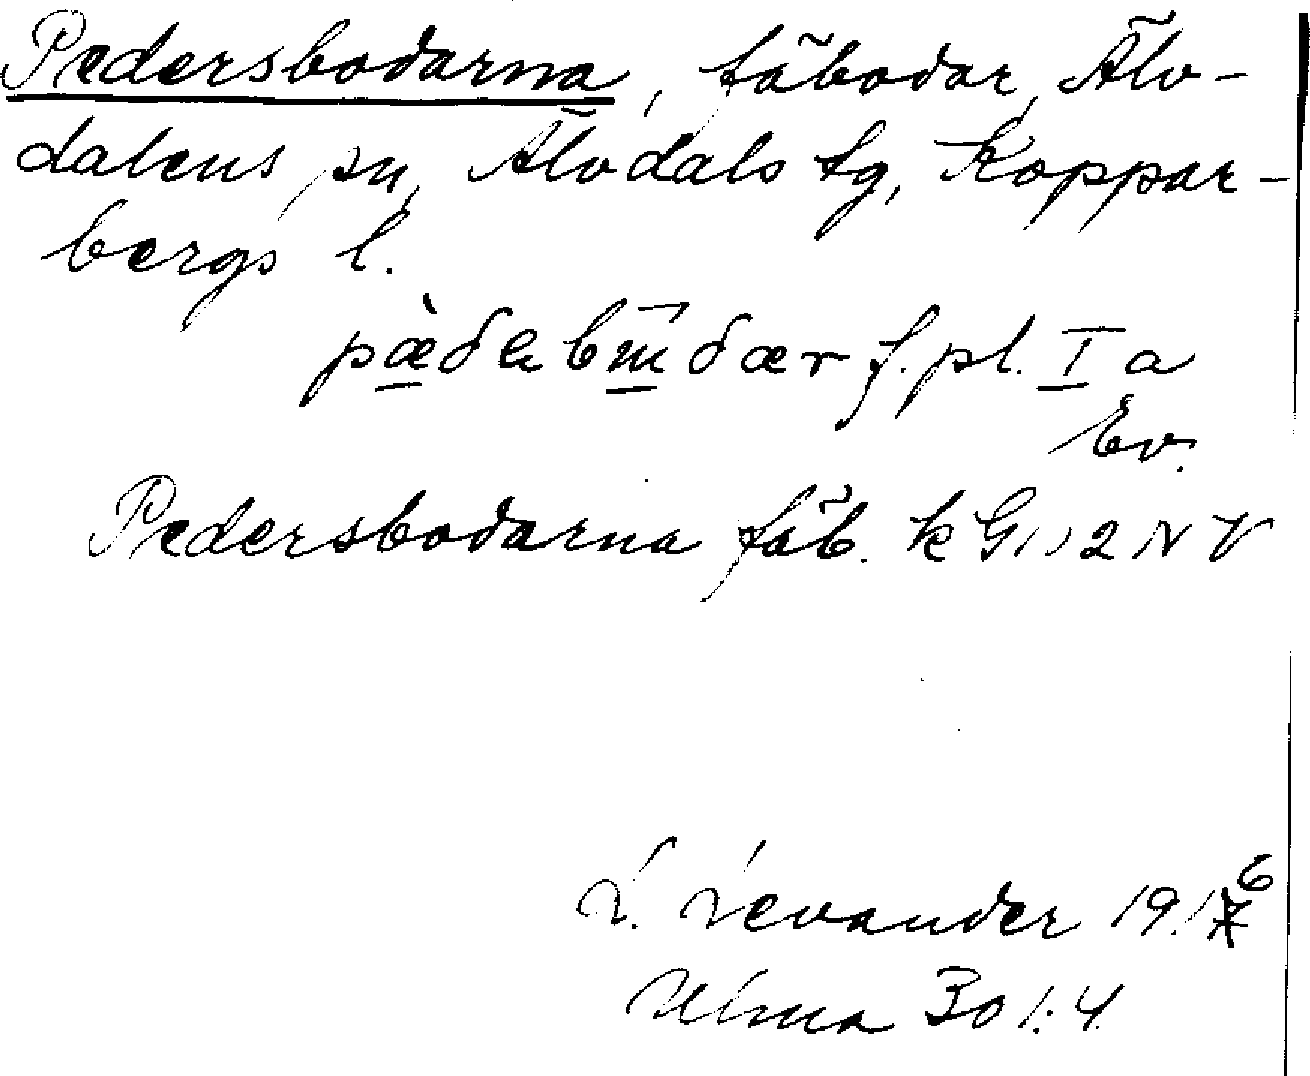 Pedersbodarna, fäbodar, Älv-
dalens sn, Älvdals tg, Koppar-
bergs l.
f. pl. I a
Ev.
Pedersbodarna fäb. k G 112 NV
L. Levander 1916
Ulma 301:4